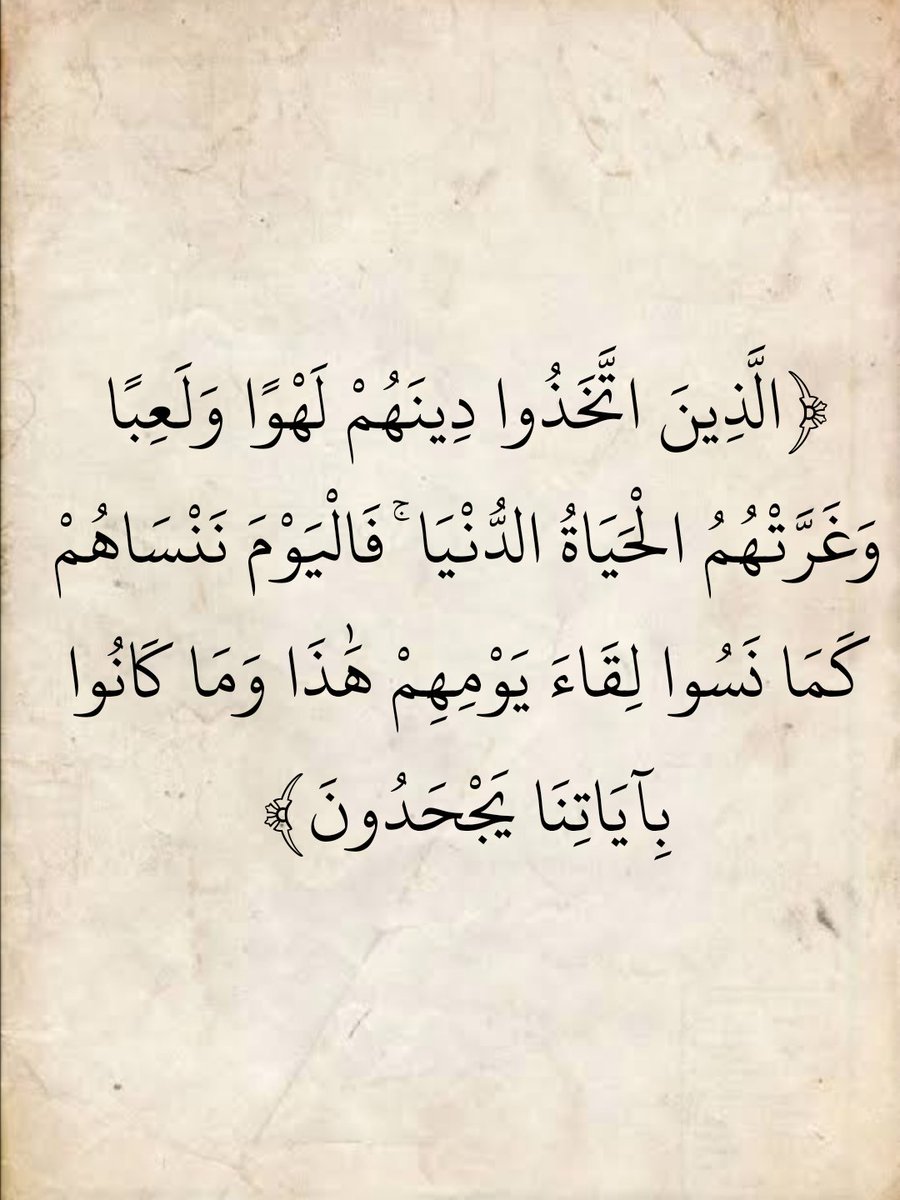 ﴿الَّذِينَ اتَّخَذُوا دِينَهُمْ لَهْوًا وَلَعِبًا
وَغَرَّتْهُمُ الْحَيَاةُ الدُّنْيَا ۚ فَالْيَوْمَ نَنْسَاهُمْ
كَمَا نَسُوا لِقَاءَ يَوْمِهِمْ هَٰذَا وَمَا كَانُوا
بِآيَاتِنَا يَجْحَدُونَ﴾